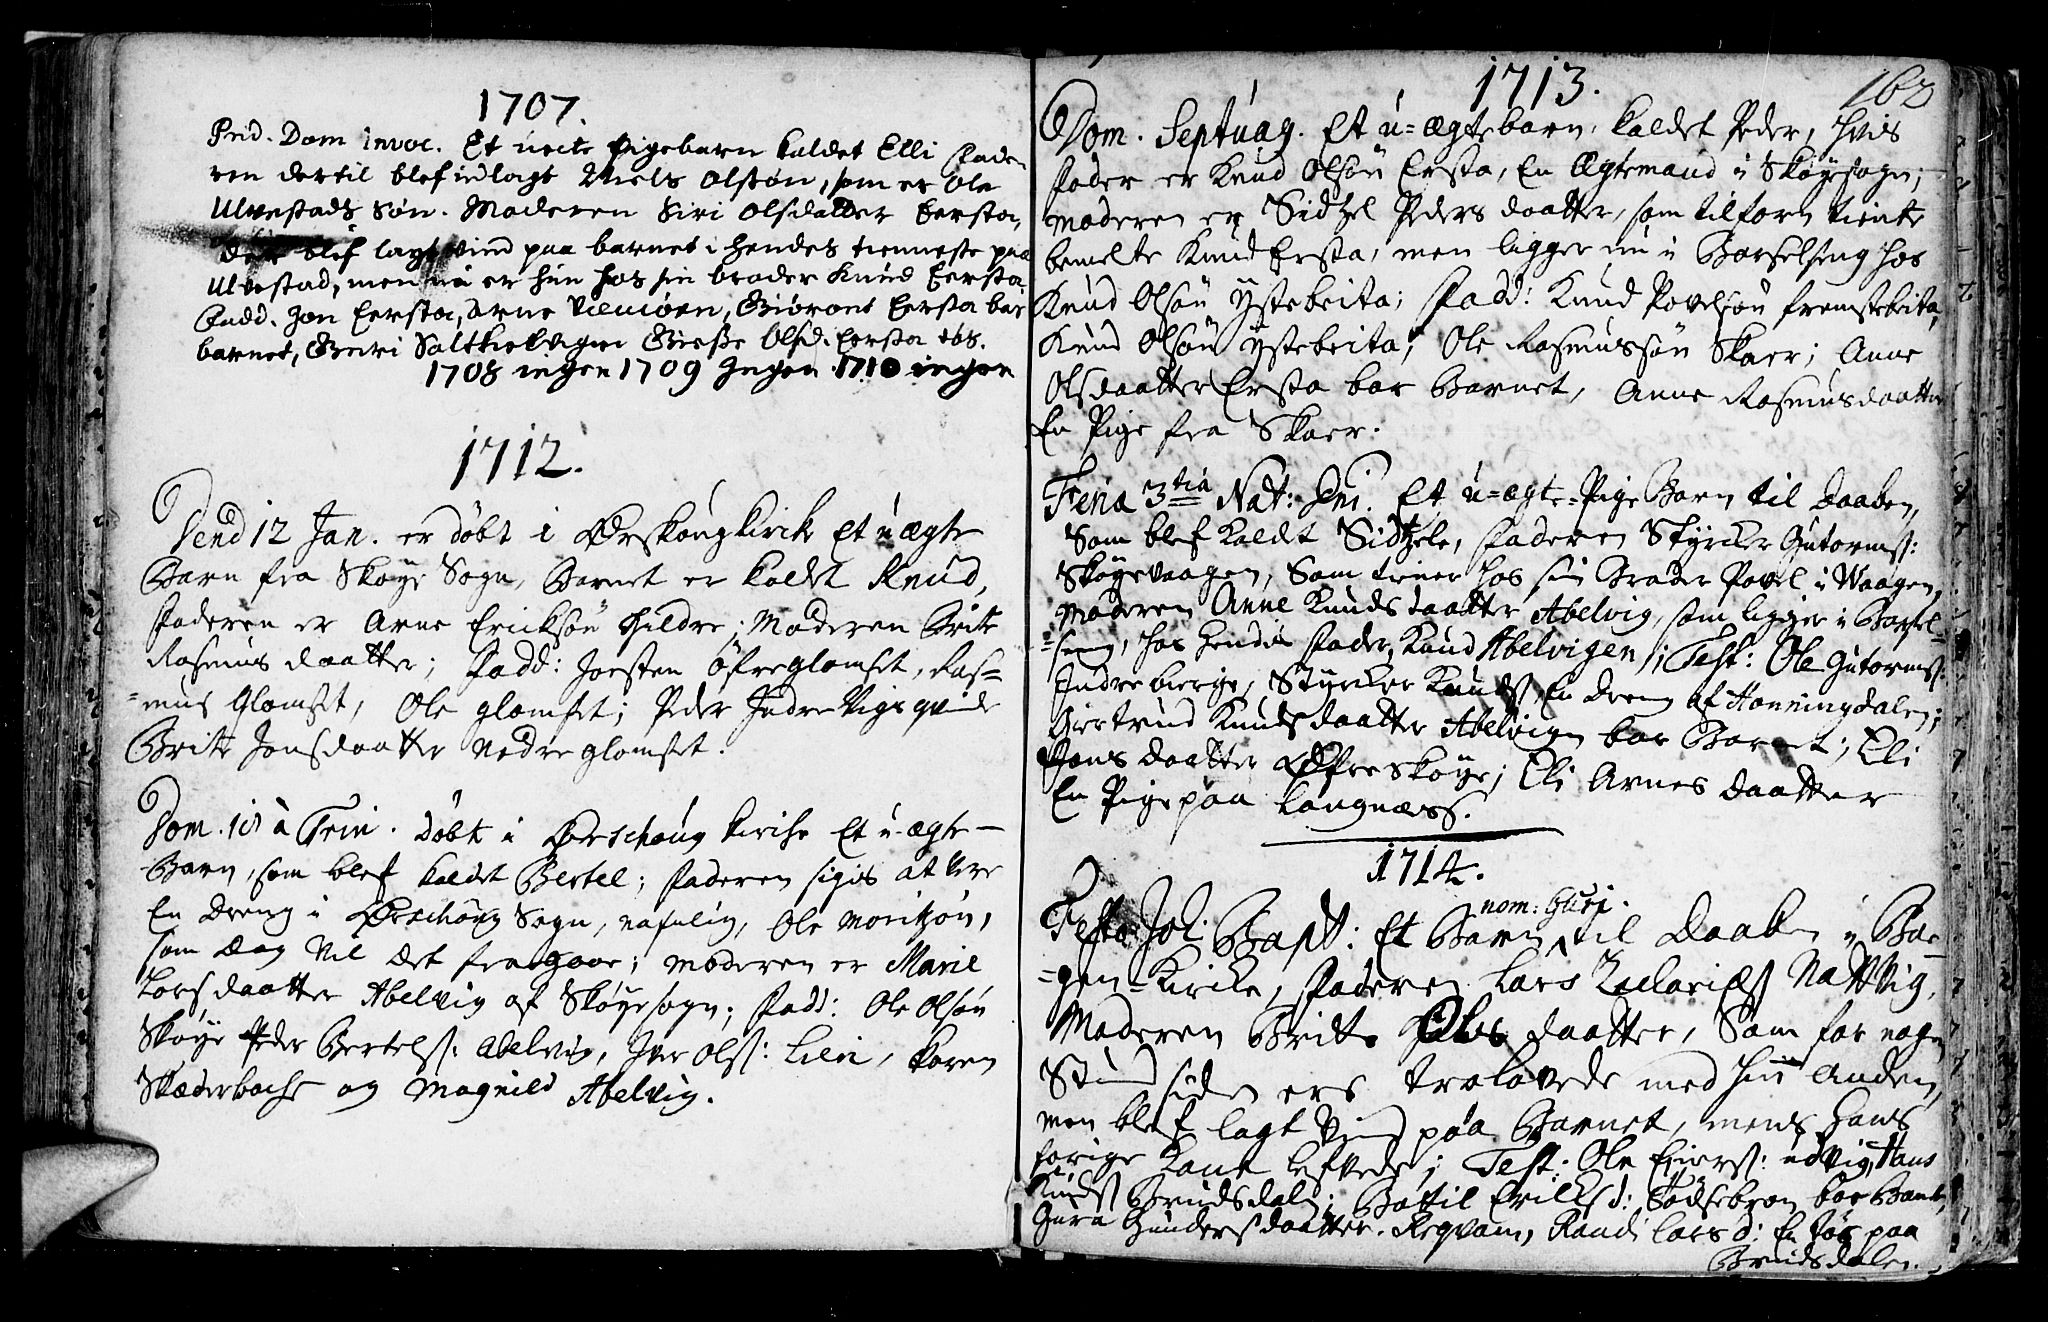 1707.
Prid. Dom invoc. Et uecte Pigebarn kaldet Elli Fade
ren dertil blef udlagt Niels Olsøn, som er Ole
Ulvestads Søn. Moderen Siri Olsdatter Eersta,
Der blef lagt vind paa barnet i hendes tienneste paa
Ulvestad, men nu er hun hos sin broder Knud Eersta
Fadd. Jon Eersta, Arne Eersta bar
barnet, Olsd. Eersta tøs.
1708 ingen 1709 Ingen 1710 ingen
1712.
Dend 12 Jan. er døbt i Ørskougkircke Et uægte
Barn fra Skoye Sogn, Barnet er kaldet Knud,
Faderen er Arne Ericksøn Hildre; Moderen Britte
Rasmus daatter; Fadd: Joesten Øfreglomset, Ras=
=mus Glomset, Ole glomset; Peder Indre Vigs qvinde
Britte Jonsdaatter Nedreglomset.
Dom. 10 à Trin. døbt i Ørschoug kirche Et u-ægte
Barn, som blef kaldet Bertel; Faderen sigis at vere
En dreng i Ørschoug Sogn, nafnlig, Ole Moritzøn,
som dog vil det fragaae; moderen er Marie
Larsdaatter Abelvig af Skøyesogn; Fadd: Ole Olsøn
Skøye Peder Bertels: Abelvig, Iver Ols: Lien, Karen
Skæderbache og Magnild Abelvig.
1713. 162
Dom. Septuag. Et u=ægtebarn, kaldet Peder, hvis
Fader er Knud Olsøn Ersta, En Ægtemand i Skøyesogn;
Moderen er Sidzel Peders daatter, som tilforn tiente
bemelte Knud Ersta, men ligger nu i Barselseng hos
Knud Olsøn Ystebrita; Fadd: Knud Povelsøn fremstebrita,
Knud Olsøn Ystebrita; Ole Rasmussøn Skaer; Anne
Olsdaatter Ersta bar Barnet, Anne Rasmusdaatter
En Pige fra Skaer.
Feria 3tia Nat: Dni. Et u=ægte=Pige Barn til daaben,
Som blef kaldet Sidtzele, Faderen Styrcker Gutorms:
Skøyevaagen, Som tiener hos sin Broder Povel i Waagen,
Moderen Anne Knuds daatter Abelvig, som ligger i Barsel=
=seng, hos hendis Fader, Knud Abelvigen; Test: Ole Gutorms:
Indrebierge, Styrcker Knuds, En dreng af Honningdalen;
Giertrud Knuds daatter Abelvigen bar Barnet; Eli
Jons daatter Øfre Skøye; Eli Arnes daatter
En Pige paa Langnæss.
1714.
nom: Guri.
Festo Joh: Bapt: Et Barn til Daaben i Bor=
=gen=Kircke, Faderen Lars Zachariæs Nattvig,
Moderen Britte Ols daatter, Som for nogen
Stund siden ere trolovede med hin anden,
men blef lagt Vind paa Barnet, mens hans
forige Kone lefvede; Test: Ole Einers: Udvig, Hans
Knuds Brudsdalen; Baltil Ericks d: Sødsebrøen bar Barnet,
Gura Gundersdaatter. Reqvam, Randi Lars d: En tøs paa
Brudsdalen.